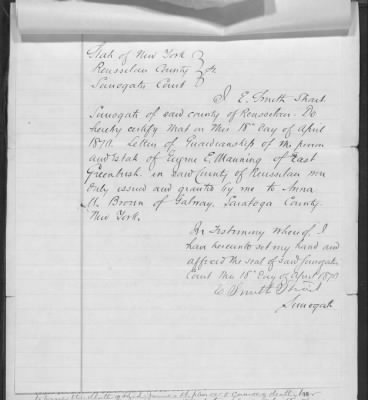 State of New York
Rensselaer County } ss.
Surrogates Court
I E. Smith Strait
Surrogate of said county of Rensselaer. Do
hereby certify that on this 18th day of April
1870. Letters of Guardianship of the person
and Estate of Eugene E. Manning of East
Greenbush in said County of Rensselaer were
duly issued and granted by me to Anna
M. Brown of Galway, Saratoga County
New York.
In Testimony whereof, I
have hereunto set my hand and
affixed the seal of said Surrogates
Court this 18th day of April 1870
E. Smith Strait
Surrogate